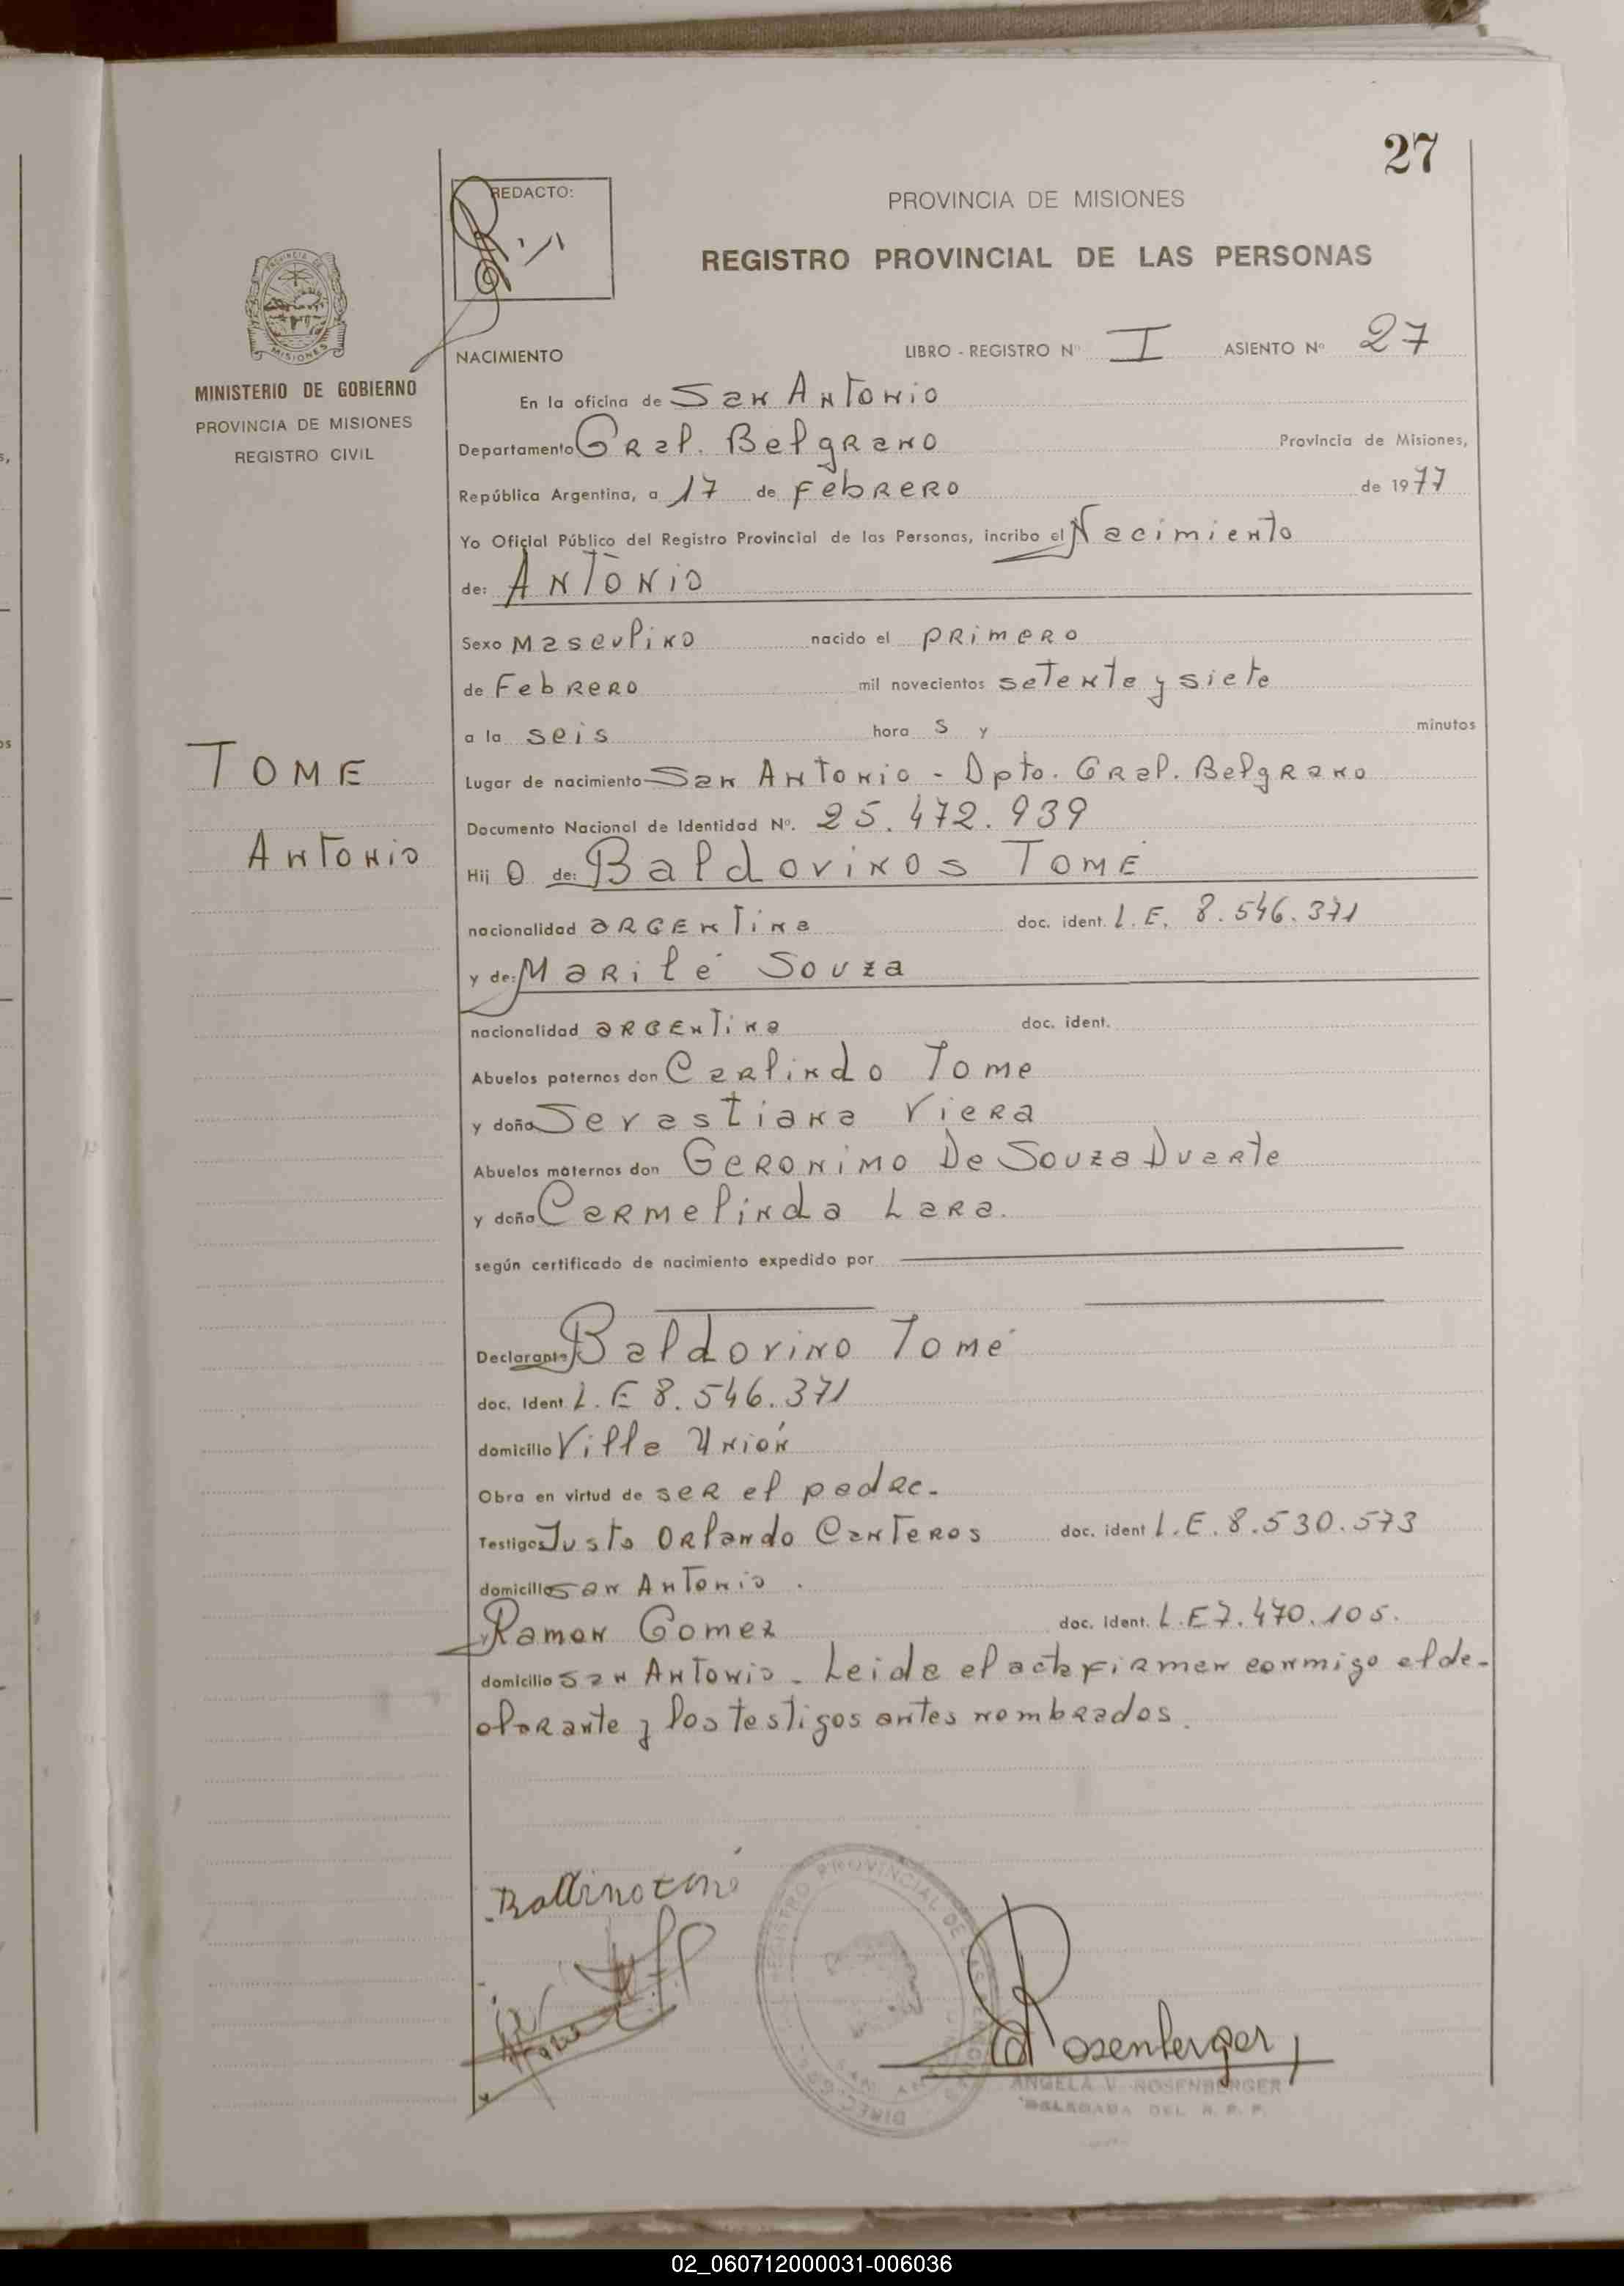 27
REDACTO:
PROVINCIA DE MISIONES
REGISTRO PROVINCIAL DE LAS PERSONAS
PROVINCIA DE
MISIONES
MINISTERIO DE GOBIERNO
PROVINCIA DE MISIONES
REGISTRO CIVIL
NACIMIENTO
LIBRO - REGISTRO Nº I ASIENTO Nº 27
En la oficina de San Antonio
Departamento Gral. Belgrano Provincia de Misiones,
República Argentina, a 17 de Febrero de 1977
Yo Oficial Público del Registro Provincial de las Personas, incribo el Nacimiento
de: Antonio
Sexo Masculino nacido el primero
de Febrero mil novecientos setenta y siete
a la seis hora s y minutos
TOME
Antonio
Lugar de nacimiento San Antonio - Dpto. Gral. Belgrano
Documento Nacional de Identidad Nº. 25.472.939
Hij o de: Baldovinos Tomé
nacionalidad argentina doc. ident. L.E. 8.546.371
y de: Marilé Souza
nacionalidad argentina doc. ident.
Abuelos paternos don Carlindo Tome
y doña Sevastiana Viera
Abuelos maternos don Geronimo De Souza Duarte
y doña Carmelinda Lara.
según certificado de nacimiento expedido por
Declarante Baldovino Tomé
doc. Ident L.E 8.546.371
domicilio Villa Unión
Obra en virtud de ser el padre.
Testigos Justo Orlando Canteros doc. ident L.E.8.530.573
domicilio San Antonio.
y Ramon Gomez doc. Ident. L.E 7.470.105.
domicilio San Antonio - Leida el acta firman conmigo el de-
clarante y los testigos antes nombrados.
REGISTRO PROVINCIAL DE LAS PERSONAS
Rosenberger
ANGELA V. ROSENBERGER
DELEGADA DEL R. P. P.
02_060712000031-006036